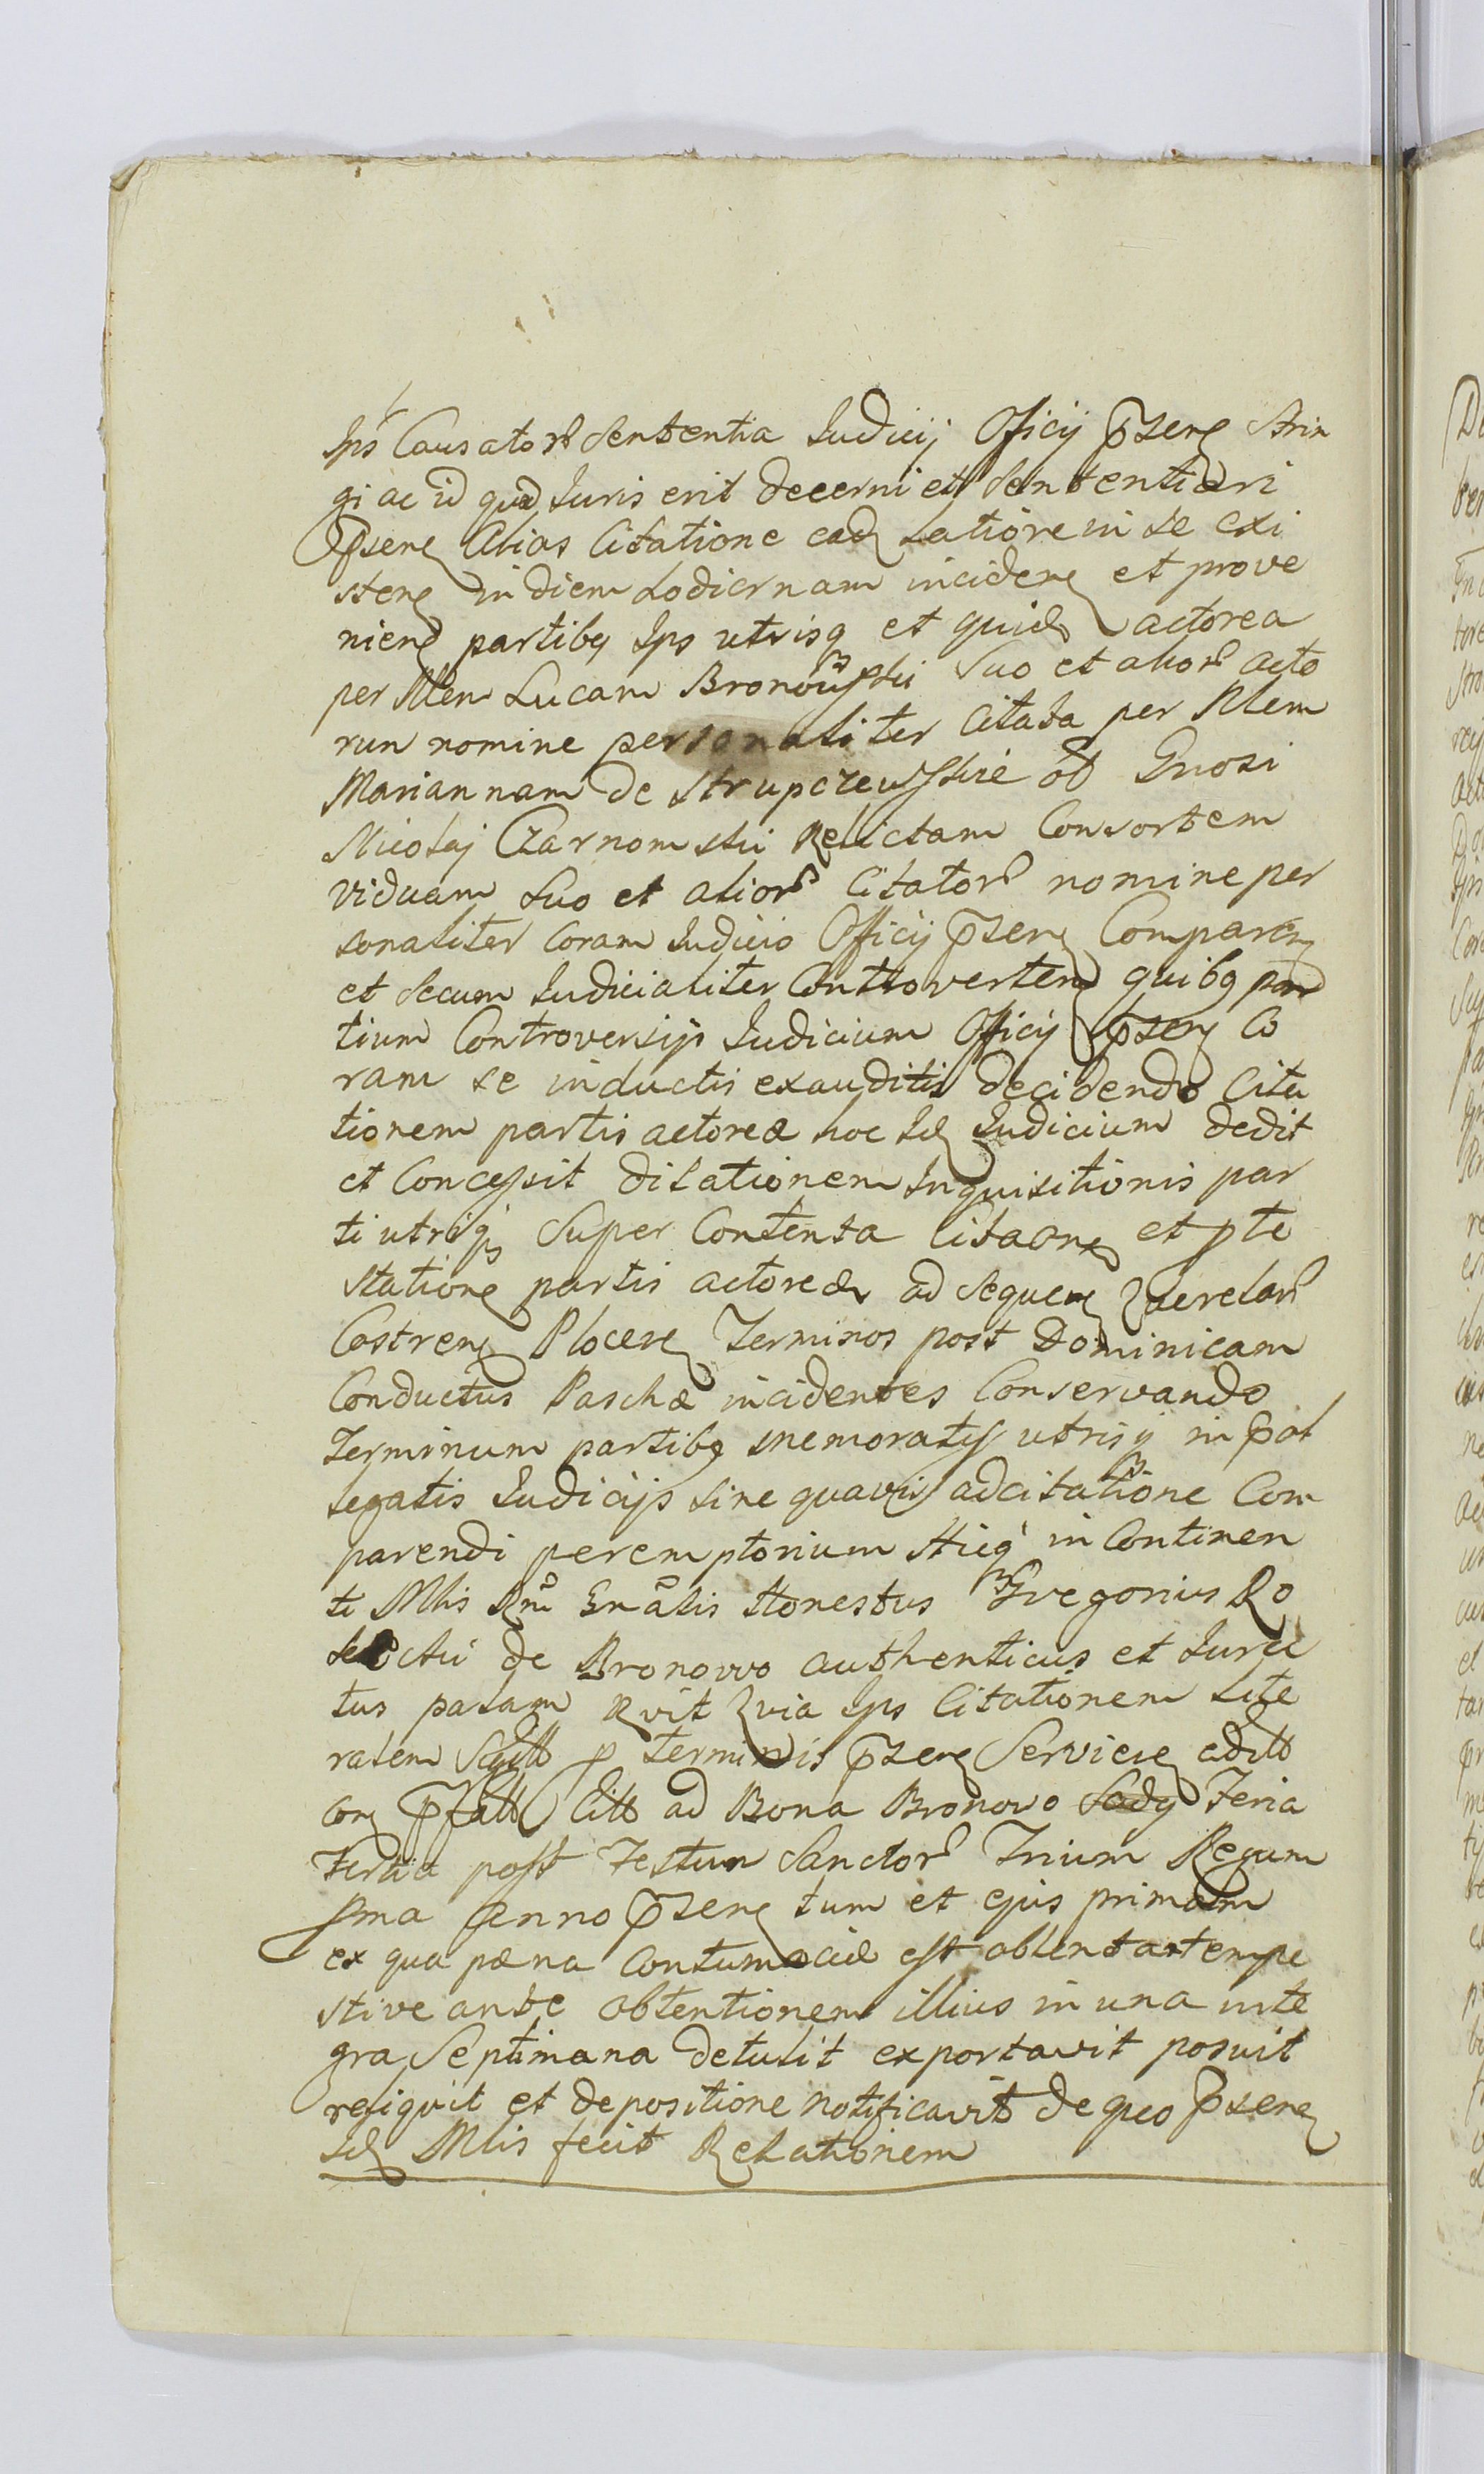 Ips Causator Sententia Iudicij Officij psene Strin
gi ac id quod Iuris erit decerni et Sententiari
Psene Alias Citatione eadq Latiore in se exi
stene in diem hodiernam incidene et prove
niene partibq Ips utrisq et quidq actorea
per Mlem Lucam Bronowski Suo et alior acto
rum nomine personaliter Citata per Mlem
Mariannam de Strupczewskie ol Gnosi
Nicolaj Czarnomski Relictam Consortem
viduam Suo et alior Citator nomine per
sonaliter Coram Iudicio Officij psene Comparen
et Secum Iudicialiter Controverten quibq par
tium Controversijs Iudicium Officij psens Co
ram se inductis exauditis decidendo Cita
tionem partis actoreæ hoc Idq Iudicium dedit
et Concessit dilationem Inquisitionis par
ti utriq Super Contenta Citaone et pte
statione partis actoreæ ad Sequene Querelar
Castrens Plocens Terminos post Dominicam
Conductus Paschæ incidentes Conservando
Terminum partibq memoratis utrisq in pal
legatis Iudicijs Sine quavis adcitatione Com
parendi peremptorium Hicq in Continen
ti Mlis Rni Gnalis Honestus Gregorius Ro
de Bronowo authenticus et Iura
tus palam Rvit Quia Ips Citationem Lite
ralem p terminis psene Servien
ad Bona Bronowo Feria
Tertia post Festum Sanctor Trium Regum
pma Anno psene tum et ejus primam
ex qua pæna Contumaciæ est obtenta tempe
stive ante obtentionem illius in una inte
gra Septimana detulit exportavit posuit
reliquit et depositione notificavit de quo psene
Idq Mlis fecit Relationem